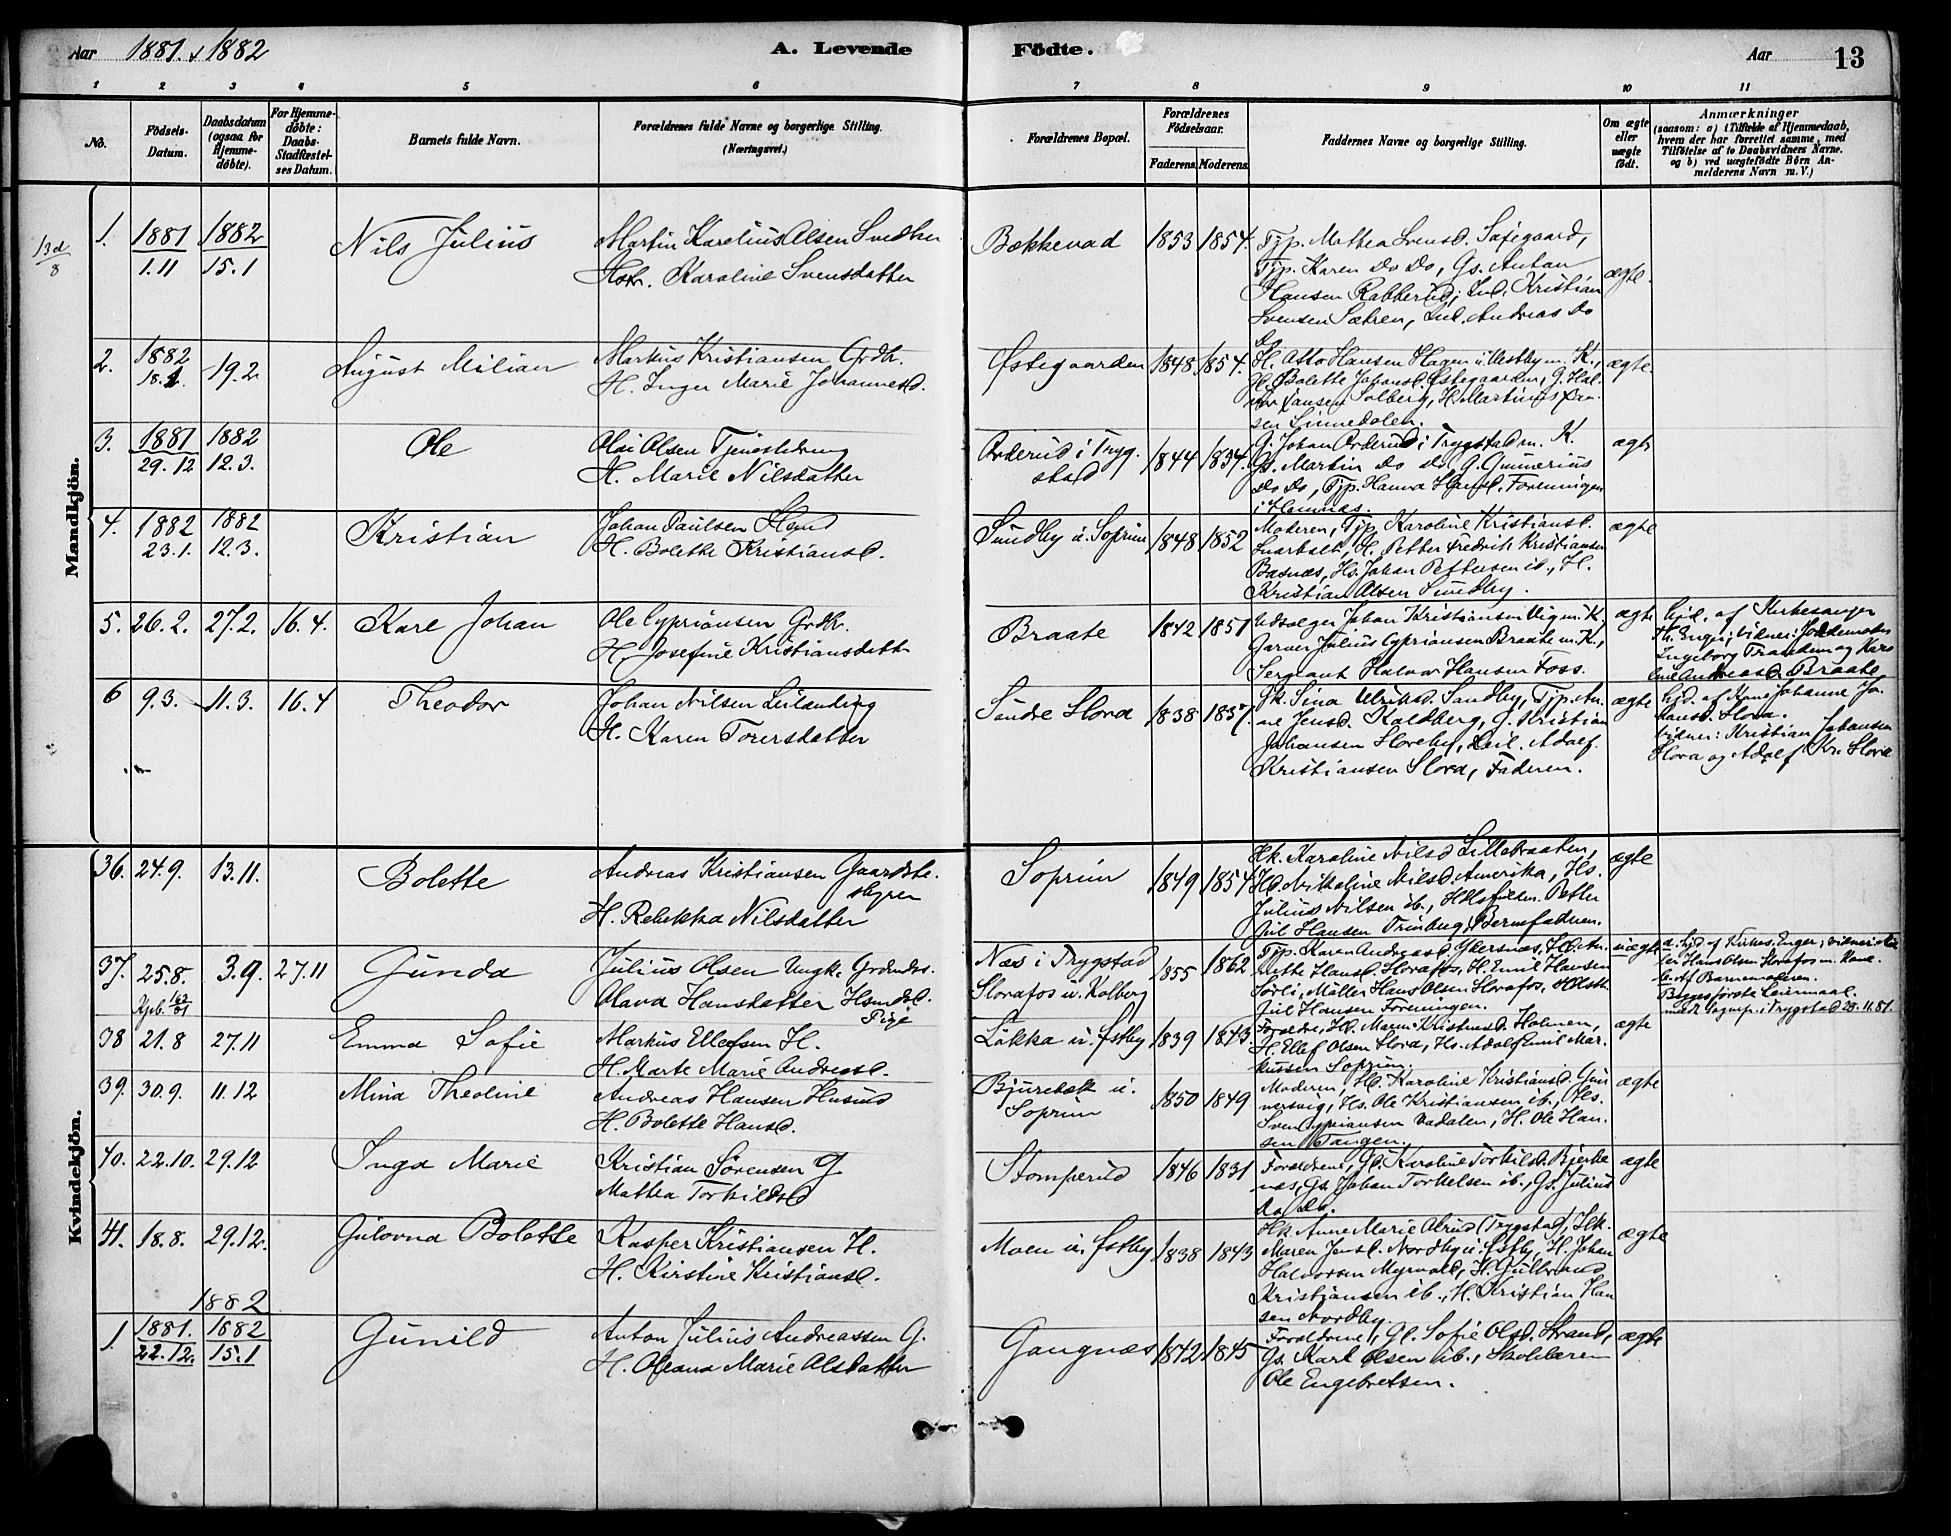 Aar 1881 & 1882
A. Levende Födte.
Aar 13
1 2 3 4 5 6 7 8 9 10 11
No.
Födsels-Datum.
Daabsdatum (ogsaa for Hjemme-döbte).
For Hjemme-döbte: Daabs-Stadfæstel-ses Datum.
Barnets fulde Navn.
Forældrenes fulde Navne og borgerlige Stilling.
(Næringsvei.)
Forældrenes Bopæl.
Forældrenes Födselsaar.
Faderens. Moderens.
Faddernes Navne og borgerlige Stilling.
Om ægte eller uægte födt.
Anmærkninger
(saasom: a) i Tilfælde af Hjemmedaab,
hvem der har forrettet samme, med
Tilföielse af to Daabsvidners Navne.
og b) ved uægtefödte Börn An-
melderens Navn m. V.)
Mandkjön.
1. 1881 1/11 1882 15.1 Nils Julius
Martin Karelius Olsen
Karoline Svensdatter
Bækkevad 1853 1854.
Tjp. Mathea Svensd.
Tjp. Karen Do Do, Gs. Anton
Hansen Rakkerud, Ind. Kristian
Svensen Sætren, Ind. Andreas Do
Do
ægte.
2. 1882 18.1. 19.2. August Milian
Markus Kristiansen Grdbr.
H. Inger Marie Johannesd.
Østegaarden 1848 1854.
H. Otto Hansen Hagen u. Østby m. K.,
Bolette Johansd. Østegaarden, G. Hal-
vor Hansen Solberg, H. Martinus
sen Linnedalen.
ægte.
3. 1881 29.12 1882 12.3. Ole
Olai Olsen Tjenestedreng
H. Marie Nilsdatter
Orderud i Tryg-
stad 1844 1834.
G. Johan Orderud i Trygstad m. K.
Gs. Martin Do Do, G. Gunerius
Do Do, Tjp. Hanna Hansd. Foreningen
i Hemnæs.
ægte
4. 1882 23.1. 1882 12.3. Kristian
Johan Paulsen Hsmd
H. Bolette Kristiansd.
Sundby u. Soprim 1848 1852
Moderen, Tjp. Karoline Kristiansd.
H. Petter Fredrik Kristiansen
Basnæs, Hs. Johan Pettersen ib., H.
Kristian Olsen Sundby.
ægte
5. 26.2. 27.2. 16.4. Karl Johan
Ole Cypriansen Grdbr.
H. Josefine Kristiansdatter
Braate 1842 1851
Udsælger Johan Kristiansen Vig m. K.,
Garver Julius Cypriansen Braate m. K.,
Sergeant Halvor Hansen Foss.
ægte
hjd. af Kirkesanger
Th. Enger, vidner: Jordemoder
Ingeborg Trandem og Karo
line Andreasd. Braate
6 9.3. 11.3. 16.4 Theodor
Johan Nilsen Leilænding
H. Karen Torersdatter
Søndre Slora 1838 1857.
Pk. Sina Ulriksd. Sandby, Tjp. An-
ne Jensd. Kaldberg, G. Kristian
Johansen Sloreby, Leil. Adolf
Kristiansen Slora, Faderen.
ægte
hjd. af Kone Johanne Jo-
hansd. Slora.
Vidner: Kristian Johansen
Slora og Adolf Kr. Slora
Kvindekjön.
36. 24.9. 13.11. Bolette
Andreas Kristiansen Gaardsbe-
styrer
H. Rebekka Nilsdatter
Soprim 1849 1854
Hk. Karoline Nilsd. Lillebraaten,
Nikoline Nilsd. Amerika, Hs.
Julius Nilsen ib., Petter
Jul. Hansen Trinborg, Barnefaderen.
ægte
37. 25.8. 3.9. 27.11 Gunda
Julius Olsen Ungk.
Olava Hansdatter
Pige
Næs i Trygstad
Slorafos u. Kolberg 1855 1862
Tjp. Karen Andreasd.
nette Hansd. Slorafos, H. Emil Hansen
Sørli, Møller Hans Olsen Slorafos,
Jul. Hansen Foreningen.
uægte
a. hjd. af Kirkes. Enger,
Hans Olsen Slorafos m. Kone
b. Af Barnemoderen.
Begges første Leiermaal.
Trygstad 28.11.81.
38 21.8 27.11 Emma Sofie
Markus Ellefsen H.
H. Marte Marie Andreasd.
Løkka u. Østby 1839 1843.
Forældre, Maren Kristensd. Holmen,
H. Ellef Olsen Slora, Hs. Adolf Emil Mar-
kussen Soprim.
ægte
39. 30.9. 11.12 Mina Theoline
Andreas Hansen Husmd
H. Bolette Hansd.
Bjurebæk u.
Soprim 1850 1849
Moderen, Karoline Kristiansd.
Hs. Ole Kristiansen ib., Hs.
Sven Cypriansen Vadalen, H. Ole Han-
sen Tangen.
ægte
40. 22.10. 29.12 Inga Marie
Kristian Sørensen G
Mathea Torkildsd
Stomperud 1846 1831
Forældrene, Gk. Karoline Torkilsd. Bjerke
næs, Gs. Johan Torkelsen ib., Gs. Julius
Do Do.
ægte
41. 18.8. 29.12. Julovna Bolette
Kasper Kristiansen H.
H. Kirstine Kristiansd.
Moen u. Østby 1838 1843
Hk. Anne Marie Olsrud (Trygstad), Hk.
Maren Jensd. Nordby u. Østby, H. Johan
Halvorsen Myrvold, H. Gulbrand
Kristiansen ib., H. Kristian Han
sen Nordby.
ægte
1882
1. 1881. 22.12. 1882 15.1 Gunild
Anton Julius Andreassen G.
H. Oleana Marie Olsdatter
Gangnæs 1842 1845
Forældrene, Gk. Sofie Olsd. Strand,
Gs. Karl Olsen ib., Skolelærer
Ole Engebretsen.
ægte